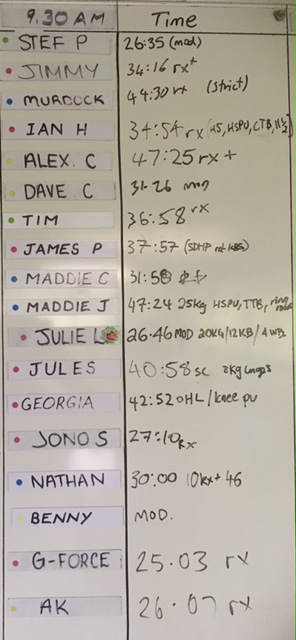 9.30 AM Time
STEF P 26:35 (mod)
JIMMY 34:16 rx+
MURDOCK 44:30 rx (strict)
IAN H 34:54 rx HSPU, CTB,
ALEX. C 47:25 rx +
DAVE C 31.26
TIM 36:58 rx
JAMES P 37:57 (SDHP not KBS)
MADDIE C 31:58
MADDIE J 47:24 25kg HSPU, TTB, ring
JULIE L 26.46 MOD 20KG/12KB/
JULES 40:58 sc
GEORGIA 42:52 OHL/knee
JONO S 27:10 RX
NATHAN 30:00 10 rx + 46
BENNY MOD.
G-FORCE 25.03 rx
AK 26.07 rx